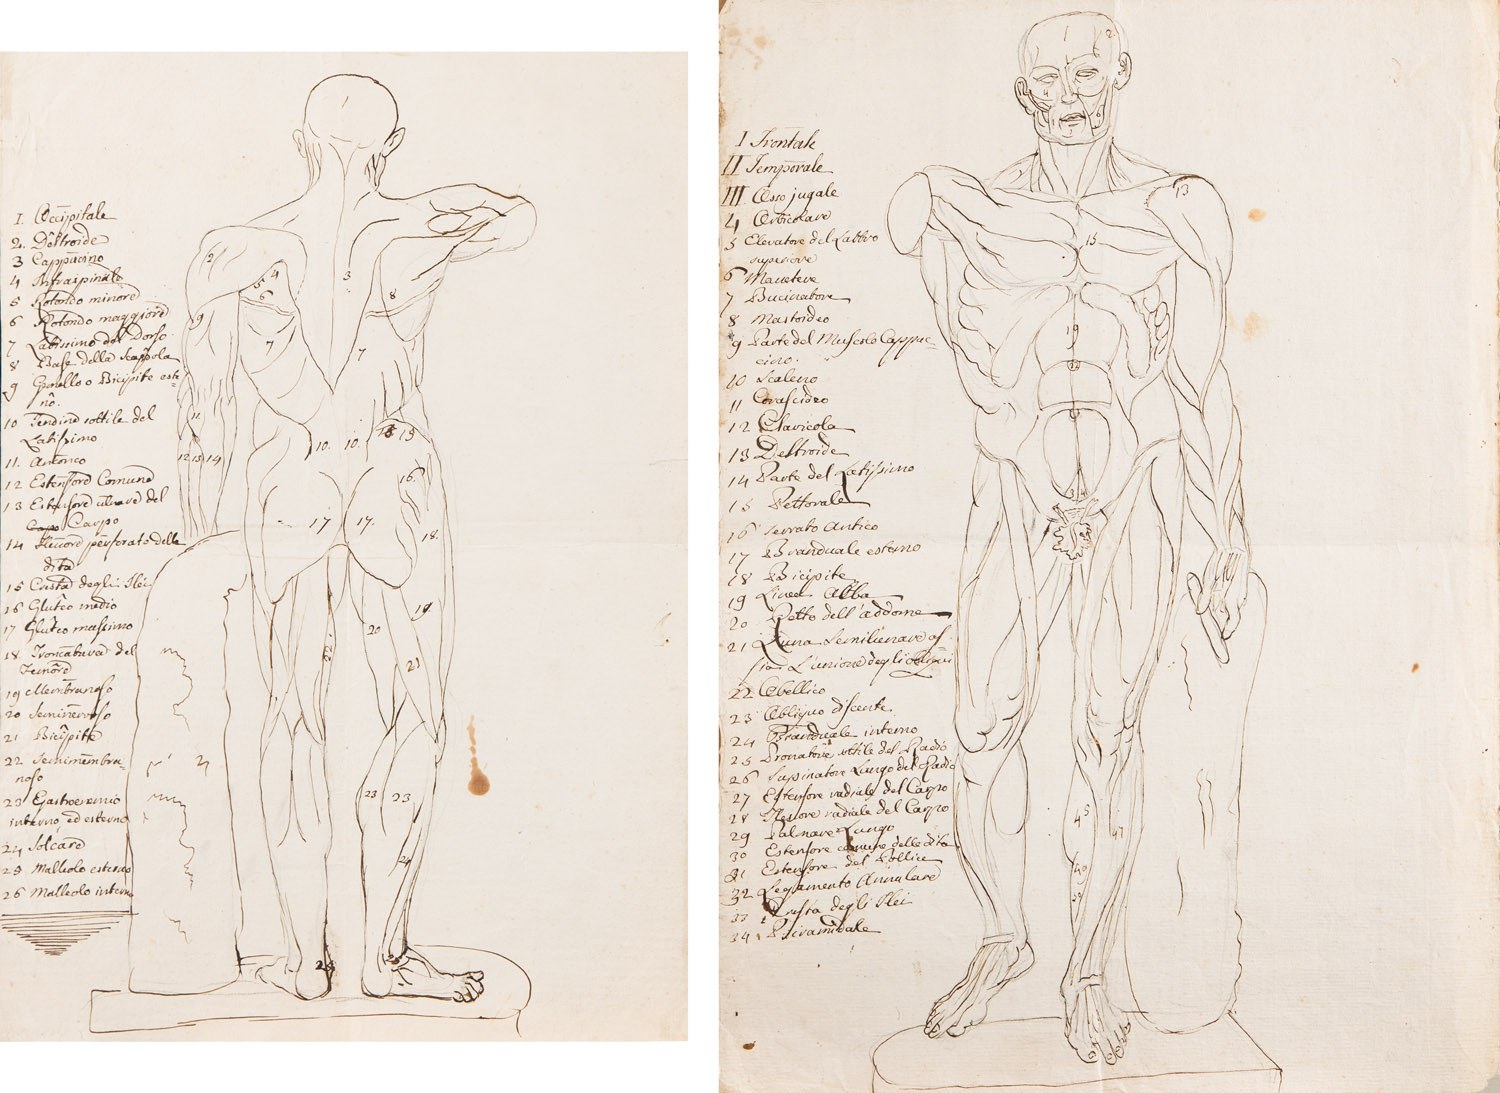 I. Occipitale
2. Deltroide
3 Cappucino
4 Infraspinato
5 Rotondo minore
6 Rotondo maggiore
7 Latissimo del Dorso
8 Base della Scappola
9 Gemello o Bicipite este-
no.
10 Tendine sottile del
Latissimo
11. Anconeo
12 Estensore Comune
13 Estensore ulnare del
Carpo
14 Flessore perforato delle
dita
15 Cresta degli Ilei
16 Gluteo medio
17 Gluteo massimo
18. Troncatura del
Femore
19 Membranoso
20 Seminervoso
21 Bicipite
22 Semimembra-
noso
23 Gastrocnemio
interno, ed esterno
24 Solcare
25 Malleolo esterno
26 Malleolo interno
2
4
5
6
3
8
9
7
7
11
12 13 14
10.
10.
15
16
17
17.
18
19
20
21
22
23
23
24
I Frontale
II Temporale
III Osso jugale
4 Orbicolare
5 Elevatore del Labbro
superiore
6 Masetere
7 Bucinatore
8 Mastoideo
9 Parte del Muscolo Cappuc-
cino.
10 Scaleno
11
12 Clavicola
13 Deltroide
14 Parte del Latissimo
15 Pettorale
16 Serrato Antico
17 Branduale esterno
18 Bicipite
19 Linea Alba
20 Retto dell'addome
21 Luna Semilunare os-
sia L'unione degli Obliqui
22 Obellico
23 Obliquo discente
24 Branduale interno
25 Pronatore sottile del Radio
26 Suppinatore Lungo del Radio
27 Estensore radiale del Carpo
28 Flessore radiale del Carpo
29 Palmare Lungo
30 Estensore comune delle dita
31 Estensore del Pollice
32 Legamento Anulare
33 Cresta degli Ilei
34 Piramidale
2
4
6
13
15
19
22
34
45
47
40